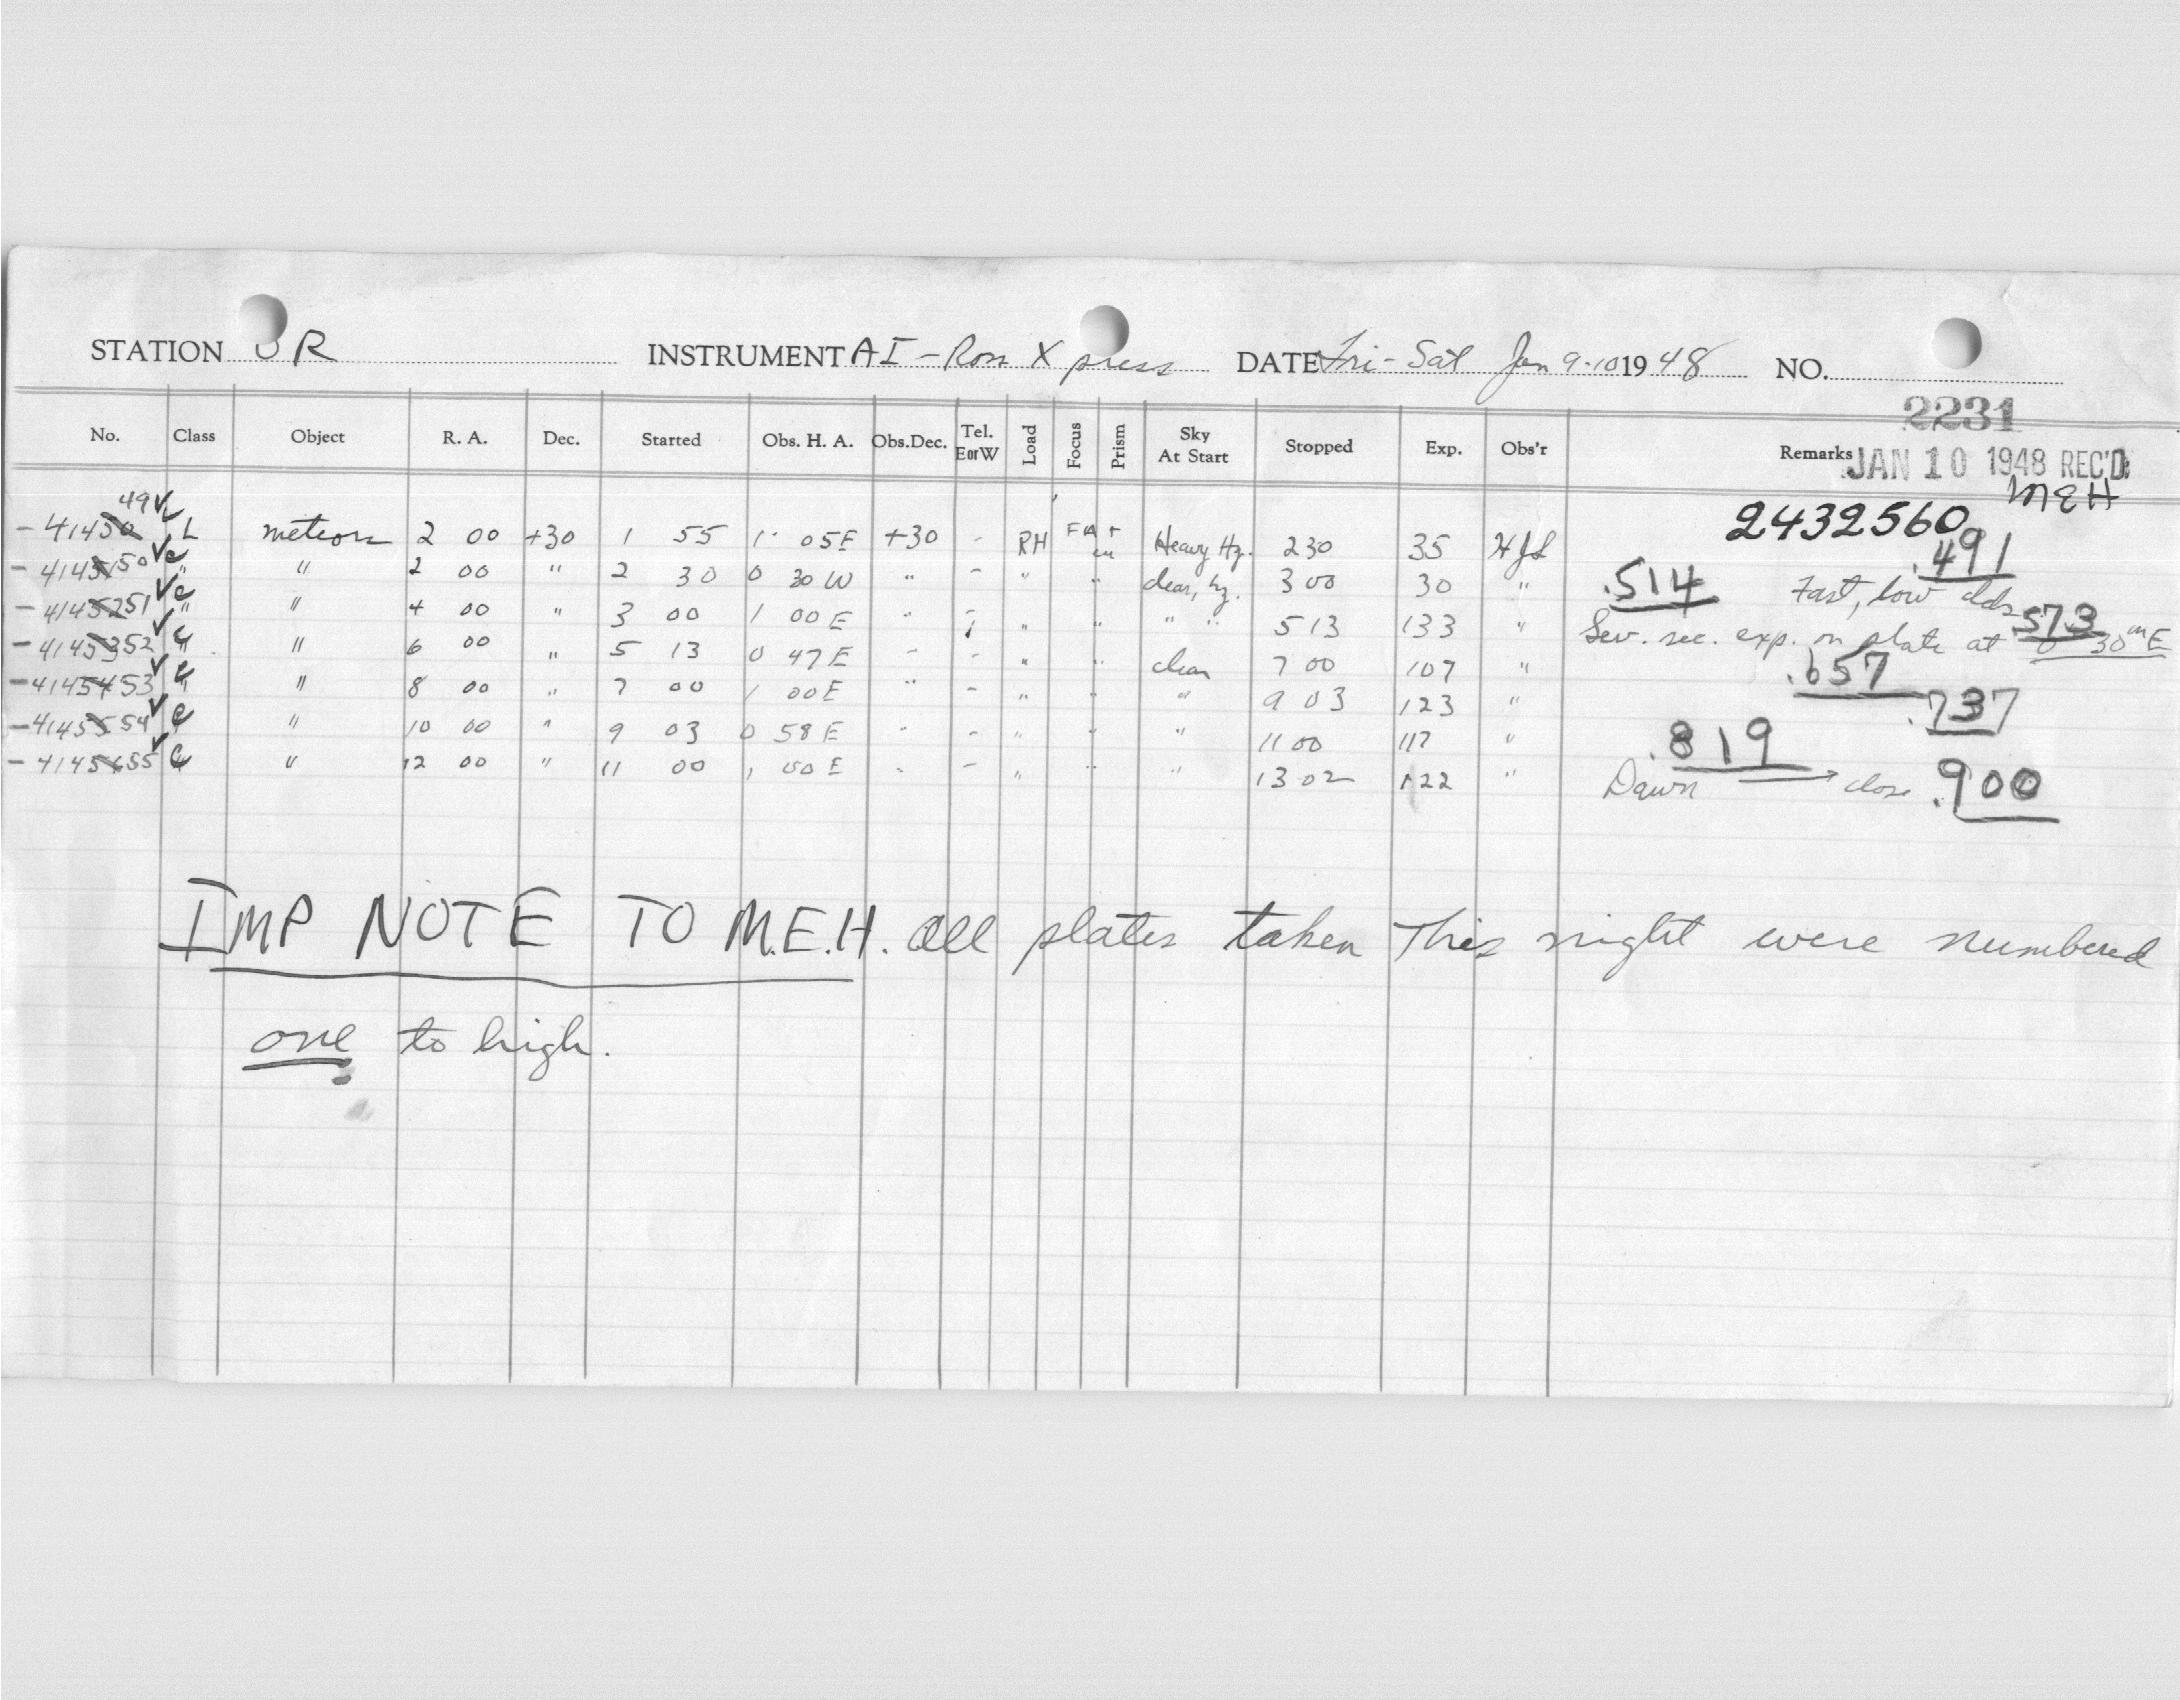 STATION OR INSTRUMENT AI - Ross Xpress DATE Fri - Sat Jan 9-10 1948 NO.
2231
No. Class Object R. A. Dec. Started Obs. H. A. Obs.Dec. Tel. E or W Load Focus Prism Sky At Start Stopped Exp. Obs'r Remarks JAN 10 1948 REC'D.
MEH
- 41450 49 L meteors 2 00 +30 1 55 1 05E +30 - RH Heavy Hz. 2 30 35 HJS 2432560 .491
- 41451 50 " " 2 00 " 2 30 0 30W " - " " clear, hz. 3 00 30 " .514 Fast, low clds
- 41452 51 " " 4 00 " 3 00 1 00E " - " " " " 5 13 133 " Sev. sec. exp. on plate at 0 30m E .573
- 41453 52 " " 6 00 " 5 13 0 47E " - " " clear 7 00 107 " .657
- 41454 53 " " 8 00 " 7 00 1 00E " - " " " 9 03 123 " .737
- 41455 54 " " 10 00 " 9 03 0 58E " - " " " 11 00 117 " .819
- 41456 55 " " 12 00 " 11 00 1 00E " - " " " 13 02 122 " Dawn → close .900
IMP NOTE TO M.E.H. All plates taken This night were numbered
one to high.